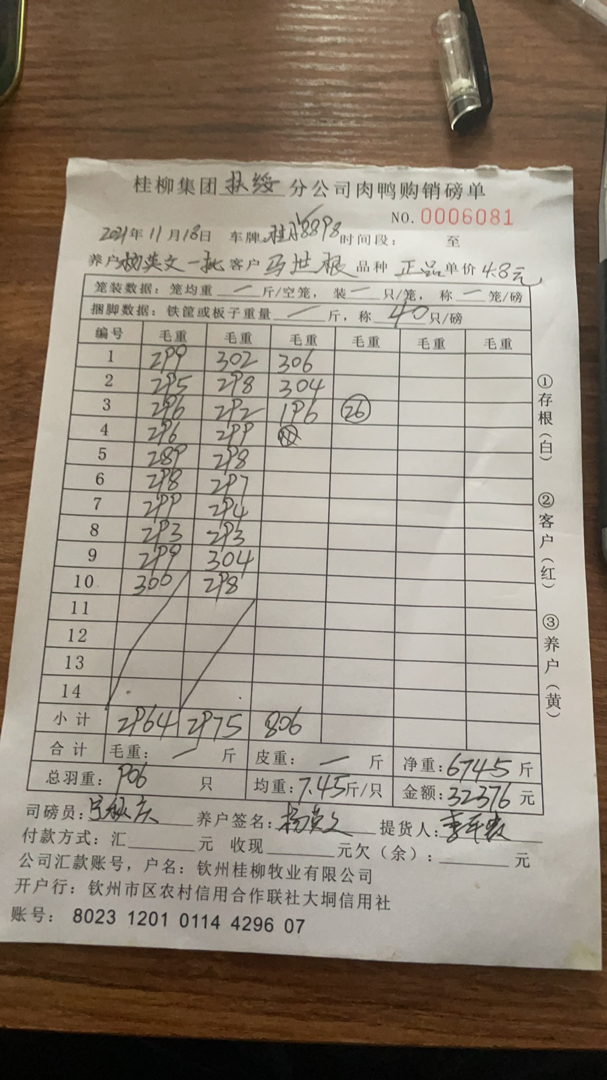 桂柳集团扶绥分公司肉鸭购销磅单
NO. 0006081
2021年11月18日 车牌: 时间段: 至
养户杨英文一批 客户 马世根 品种 正品 单价 4.8元
笼装数据: 笼均重 — 斤/空笼, 装 — 只/笼, 称 — 笼/磅
捆脚数据: 铁筐或板子重量 — 斤, 称 40 只/磅
编号 毛重 毛重 毛重 毛重 毛重 毛重
1 299 302 306
2 295 298 304
3 296 292 196 26
4 296 299
5 289 298
6 298 297
7 299 294
8 293 293
9 299 304
10 300 298
11
12
13
14
小计 2964 2975 806
合计 毛重: — 斤 皮重: — 斤 净重: 6745 斤
总羽重: 906 只 均重: 7.45斤/只 金额: 32376 元
司磅员: 养户签名: 杨英文 提货人:
付款方式: 汇 元 收现 元欠(余): 元
公司汇款账号, 户名: 钦州桂柳牧业有限公司
开户行: 钦州市区农村信用合作联社大垌信用社
账号: 8023 1201 0114 4296 07
①存根(白)
②客户(红)
③养户(黄)